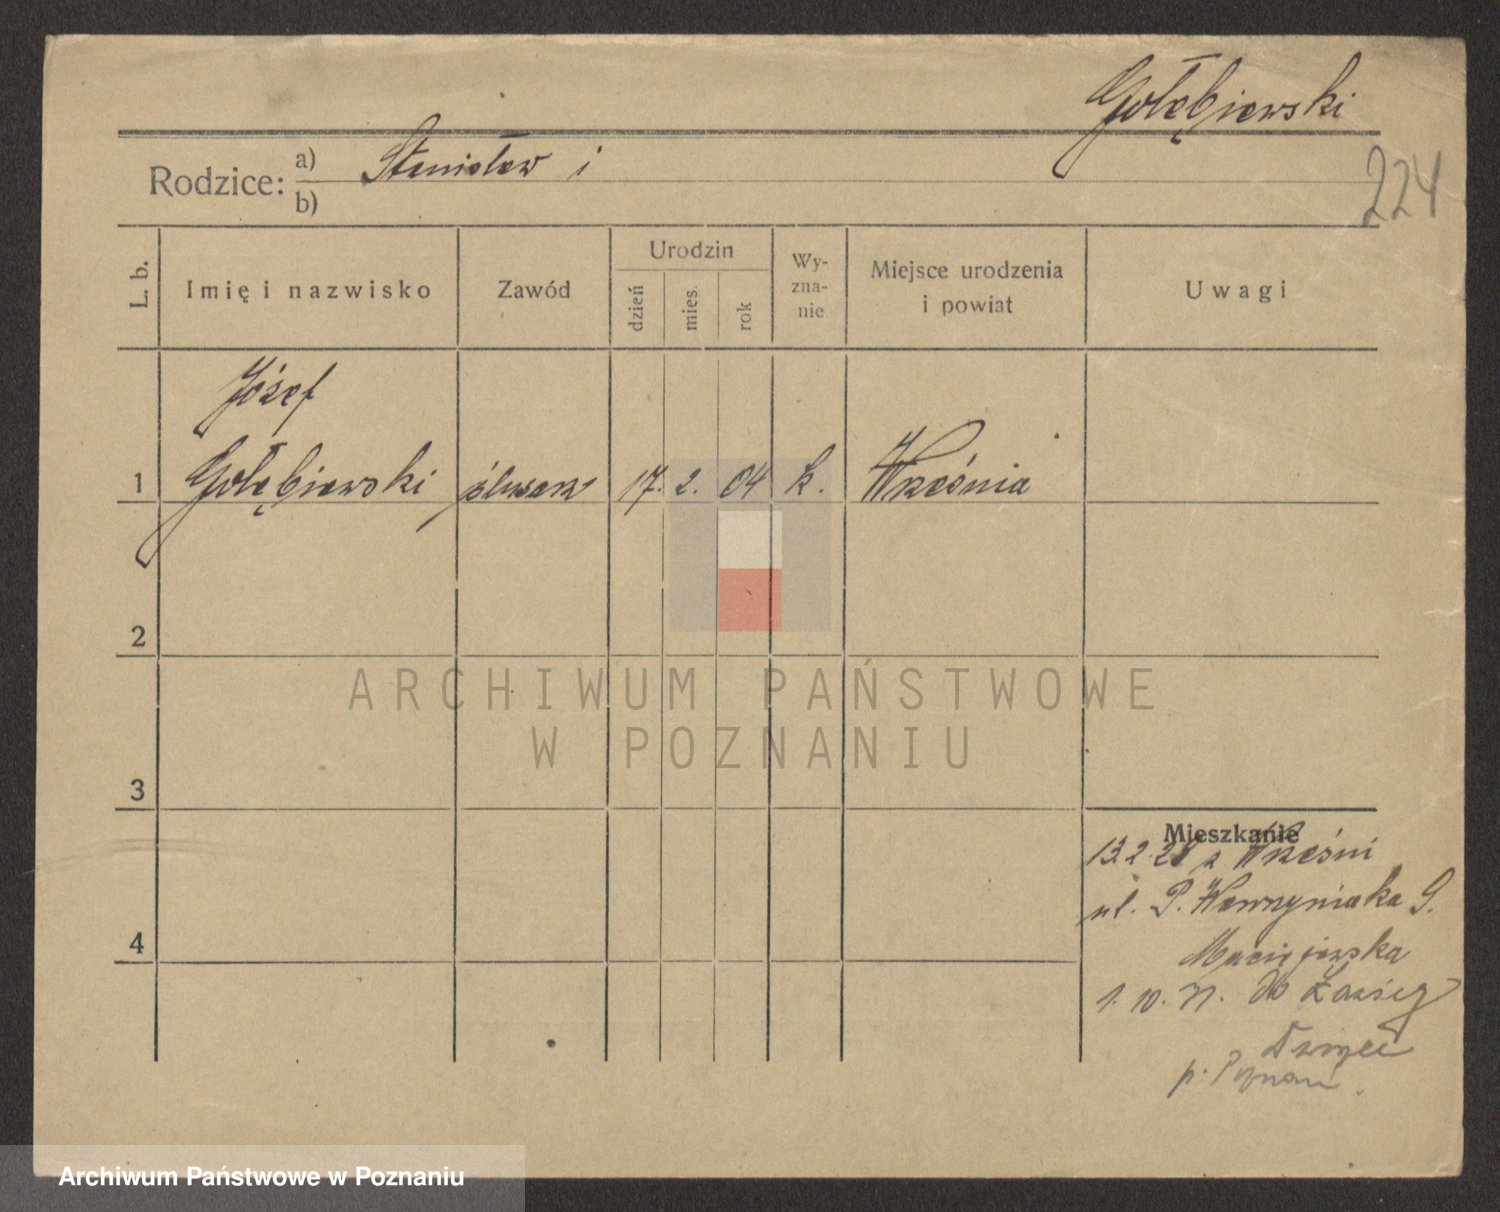 Gołębiewski
224
Rodzice:
a) Stanisław i
b)
L. b.
Imię i nazwisko
Zawód
Urodzin
dzień
mies.
rok
Wy-
zna-
nie
Miejsce urodzenia
i powiat
Uwagi
Józef
1 Gołębiewski ślusarz 17. 2. 04 k. Września
2
ARCHIWUM PAŃSTWOWE
W POZNANIU
3
Mieszkanie
13.2.28 z Wrześni
ul. P. Wawrzyniaka 9.
Maciejewska
4
1. 10. do
p. Poznań
Archiwum Państwowe w Poznaniu